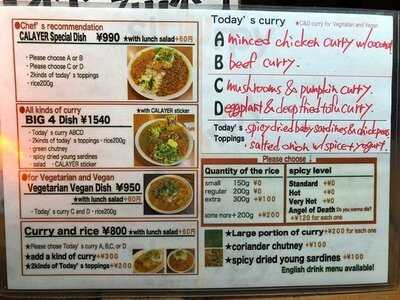 ●Chef's recommendation
CALAYER Special Dish ¥990 ★with lunch salad+60円
・Please choose A or B
・Please choose C or D
・2kinds of today's toppings
・rice200g
●All kinds of curry
★with CALAYER sticker
BIG 4 Dish ¥1540
・Today's curry ABCD
・2kinds of today's toppings・rice200g
・green chutney
・spicy dried young sardines
・salad ・CALAYER sticker
●for Vegetarian and Vegan
Vegetarian Vegan Dish ¥950
★with lunch salad+60円
・Today's curry C and D ・rice200g
Curry and rice ¥800 ★with lunch salad+60円
●Please chose Today's curry A, B, C, or D
★add a kind of curry+¥300
★2kinds of Today's toppings+¥200
Today's curry ★C&D curry for Vegitarian and Vegan
A minced chicken curry w/coconut
B beef curry.
C mushrooms & pumpkin curry.
D eggplant & deep fried tofu curry.
Today's Toppings
・spicy dried baby sardines & chickpeas
・salted onion w/ spice + yogurt.
Please choose ↓
Quantity of the rice
small 150g ¥0
regular 200g ¥0
extra 300g +¥100
some more +200g +¥200
spicy level
Standard +¥0
Hot +¥0
Very Hot +¥0
Angel of Death Do you wanna die?
+¥120 for each one
★Large portion of curry+¥200 for each one
★coriander chutney +¥100
★spicy dried young sardines +¥100
English drink menu available!